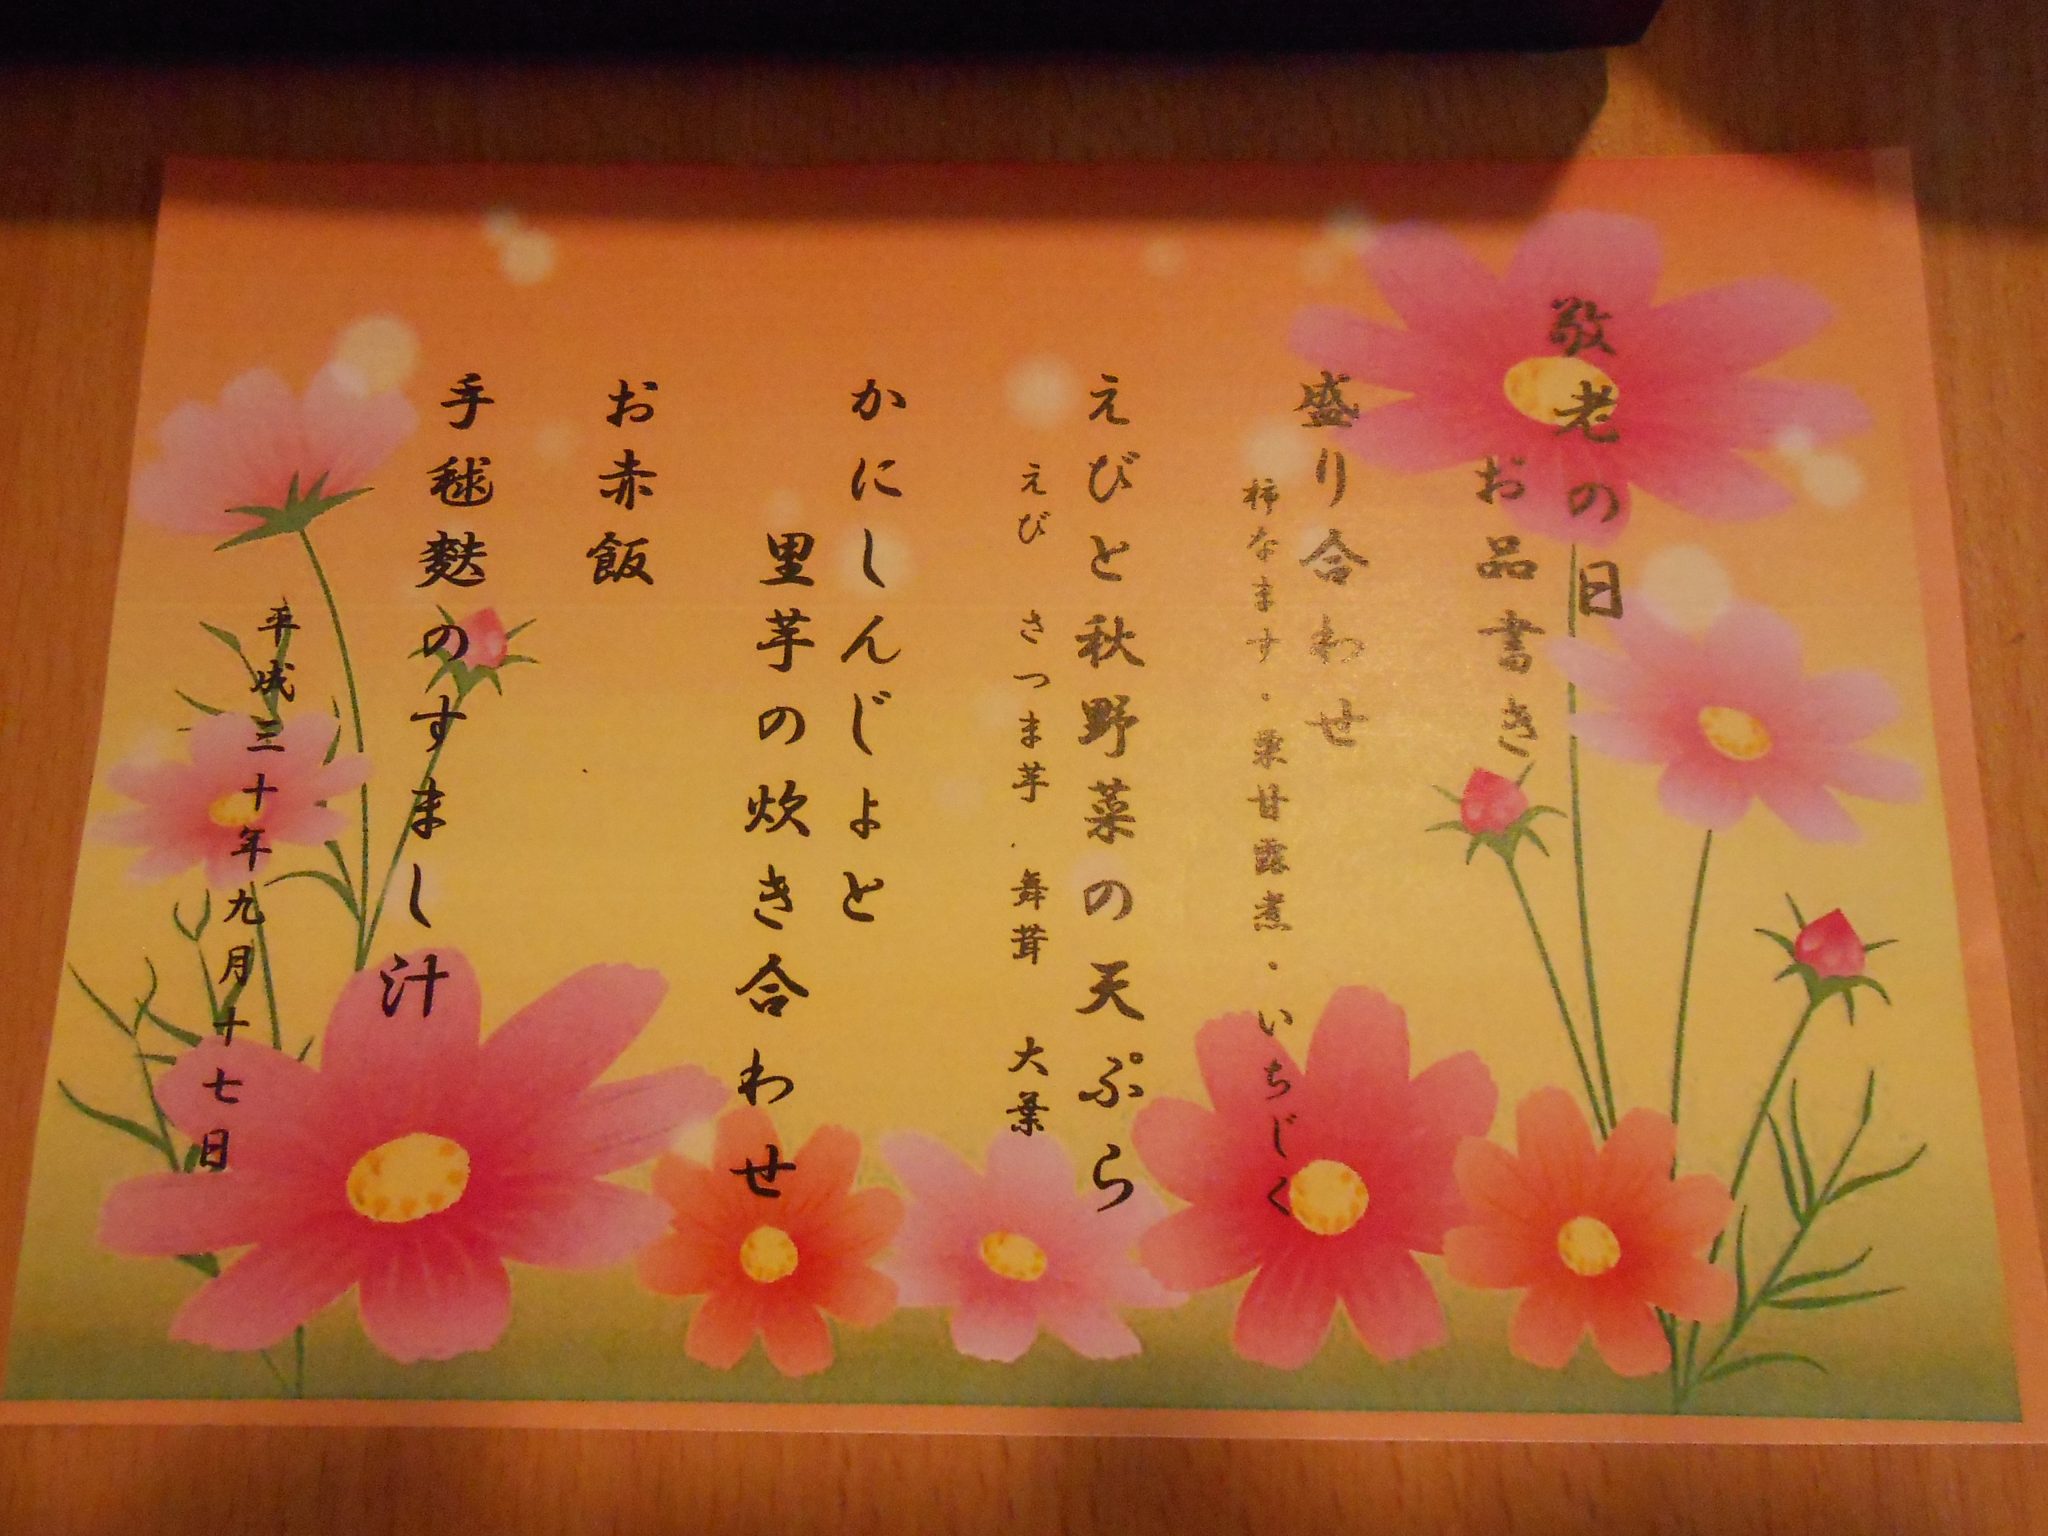 敬老の日
お品書き
盛り合わせ
柿なます・栗甘露煮・いちじく
えびと秋野菜の天ぷら
えび さつま芋・舞茸 大葉
かにしんじょと
里芋の炊き合わせ
お赤飯
手毬麩のすまし汁
平成三十年九月十七日